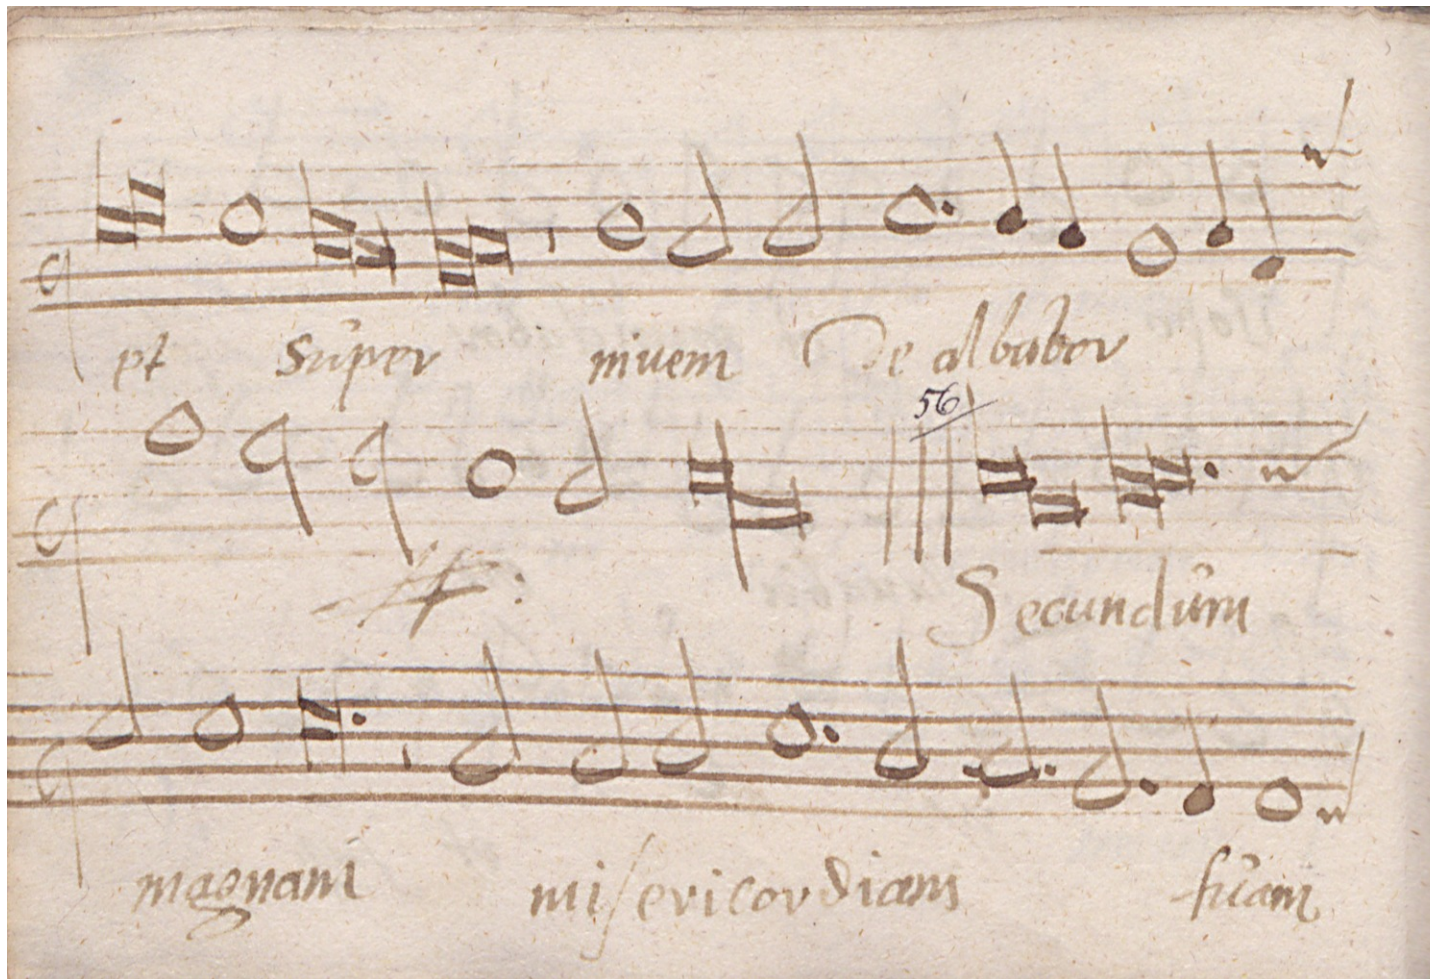 et super nivem De albabor
56
Secundum
magnam misericordiam suam